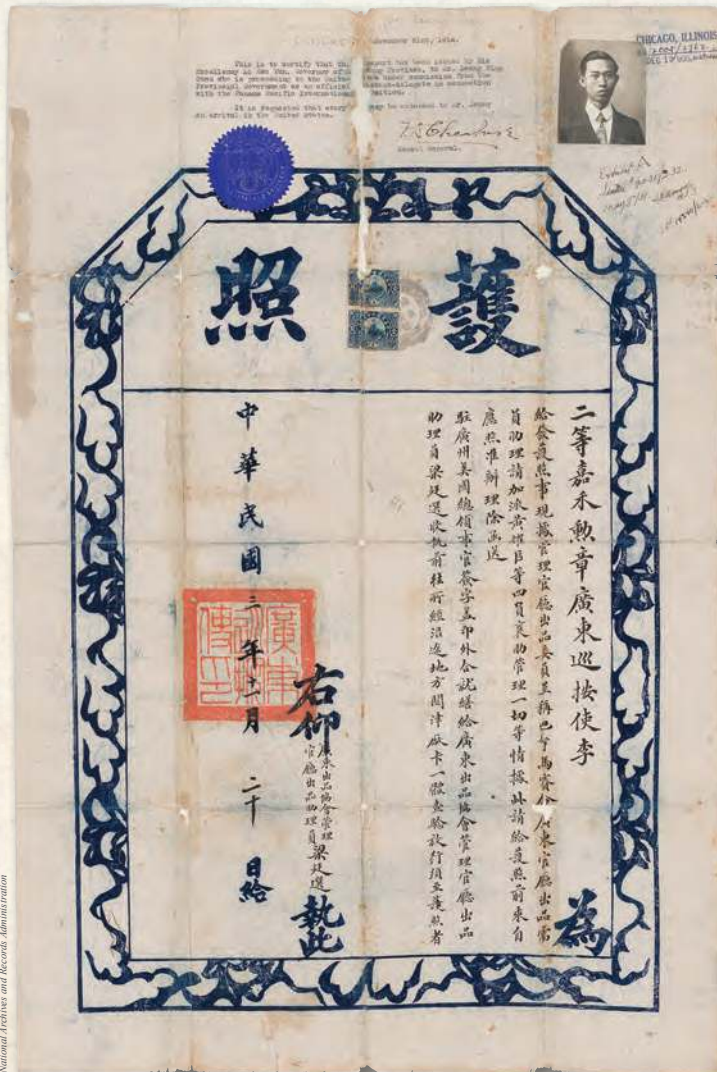 November 21st, 1914.
This is to certify that
passport has been issued by His
Excellency
Governor of
Province, to Mr.
who is proceeding to the United
under commission from the
Provincial Government as an official
in connection
with the Panama Pacific International
It is requested that every
may be extended to Mr.
on arrival in the United States.
Consul General.
CHICAGO, ILLINOIS
2005/1762
DEC 19
Exhibit A
護照
二等嘉禾勲章廣東巡按使李
為
給發護照事現據管理官廳出品委員呈稱巴拿馬賽會廣東官廳出品需
員助理請加派黃㩴臣等四員襄助管理一切等情據此請給護照前來自
應照准辦理除函送
駐廣州美國總領事官簽字蓋印外合就繕給廣東出品協會管理官廳出品
助理員梁廷選收執前往所經沿途地方關津厰卡一體查驗放行須至護照者
右仰
廣東出品協會管理
官廳出品助理員梁廷選
執此
中華民國三年十一月二十日給
廣東巡按使印
National Archives and Records Administration